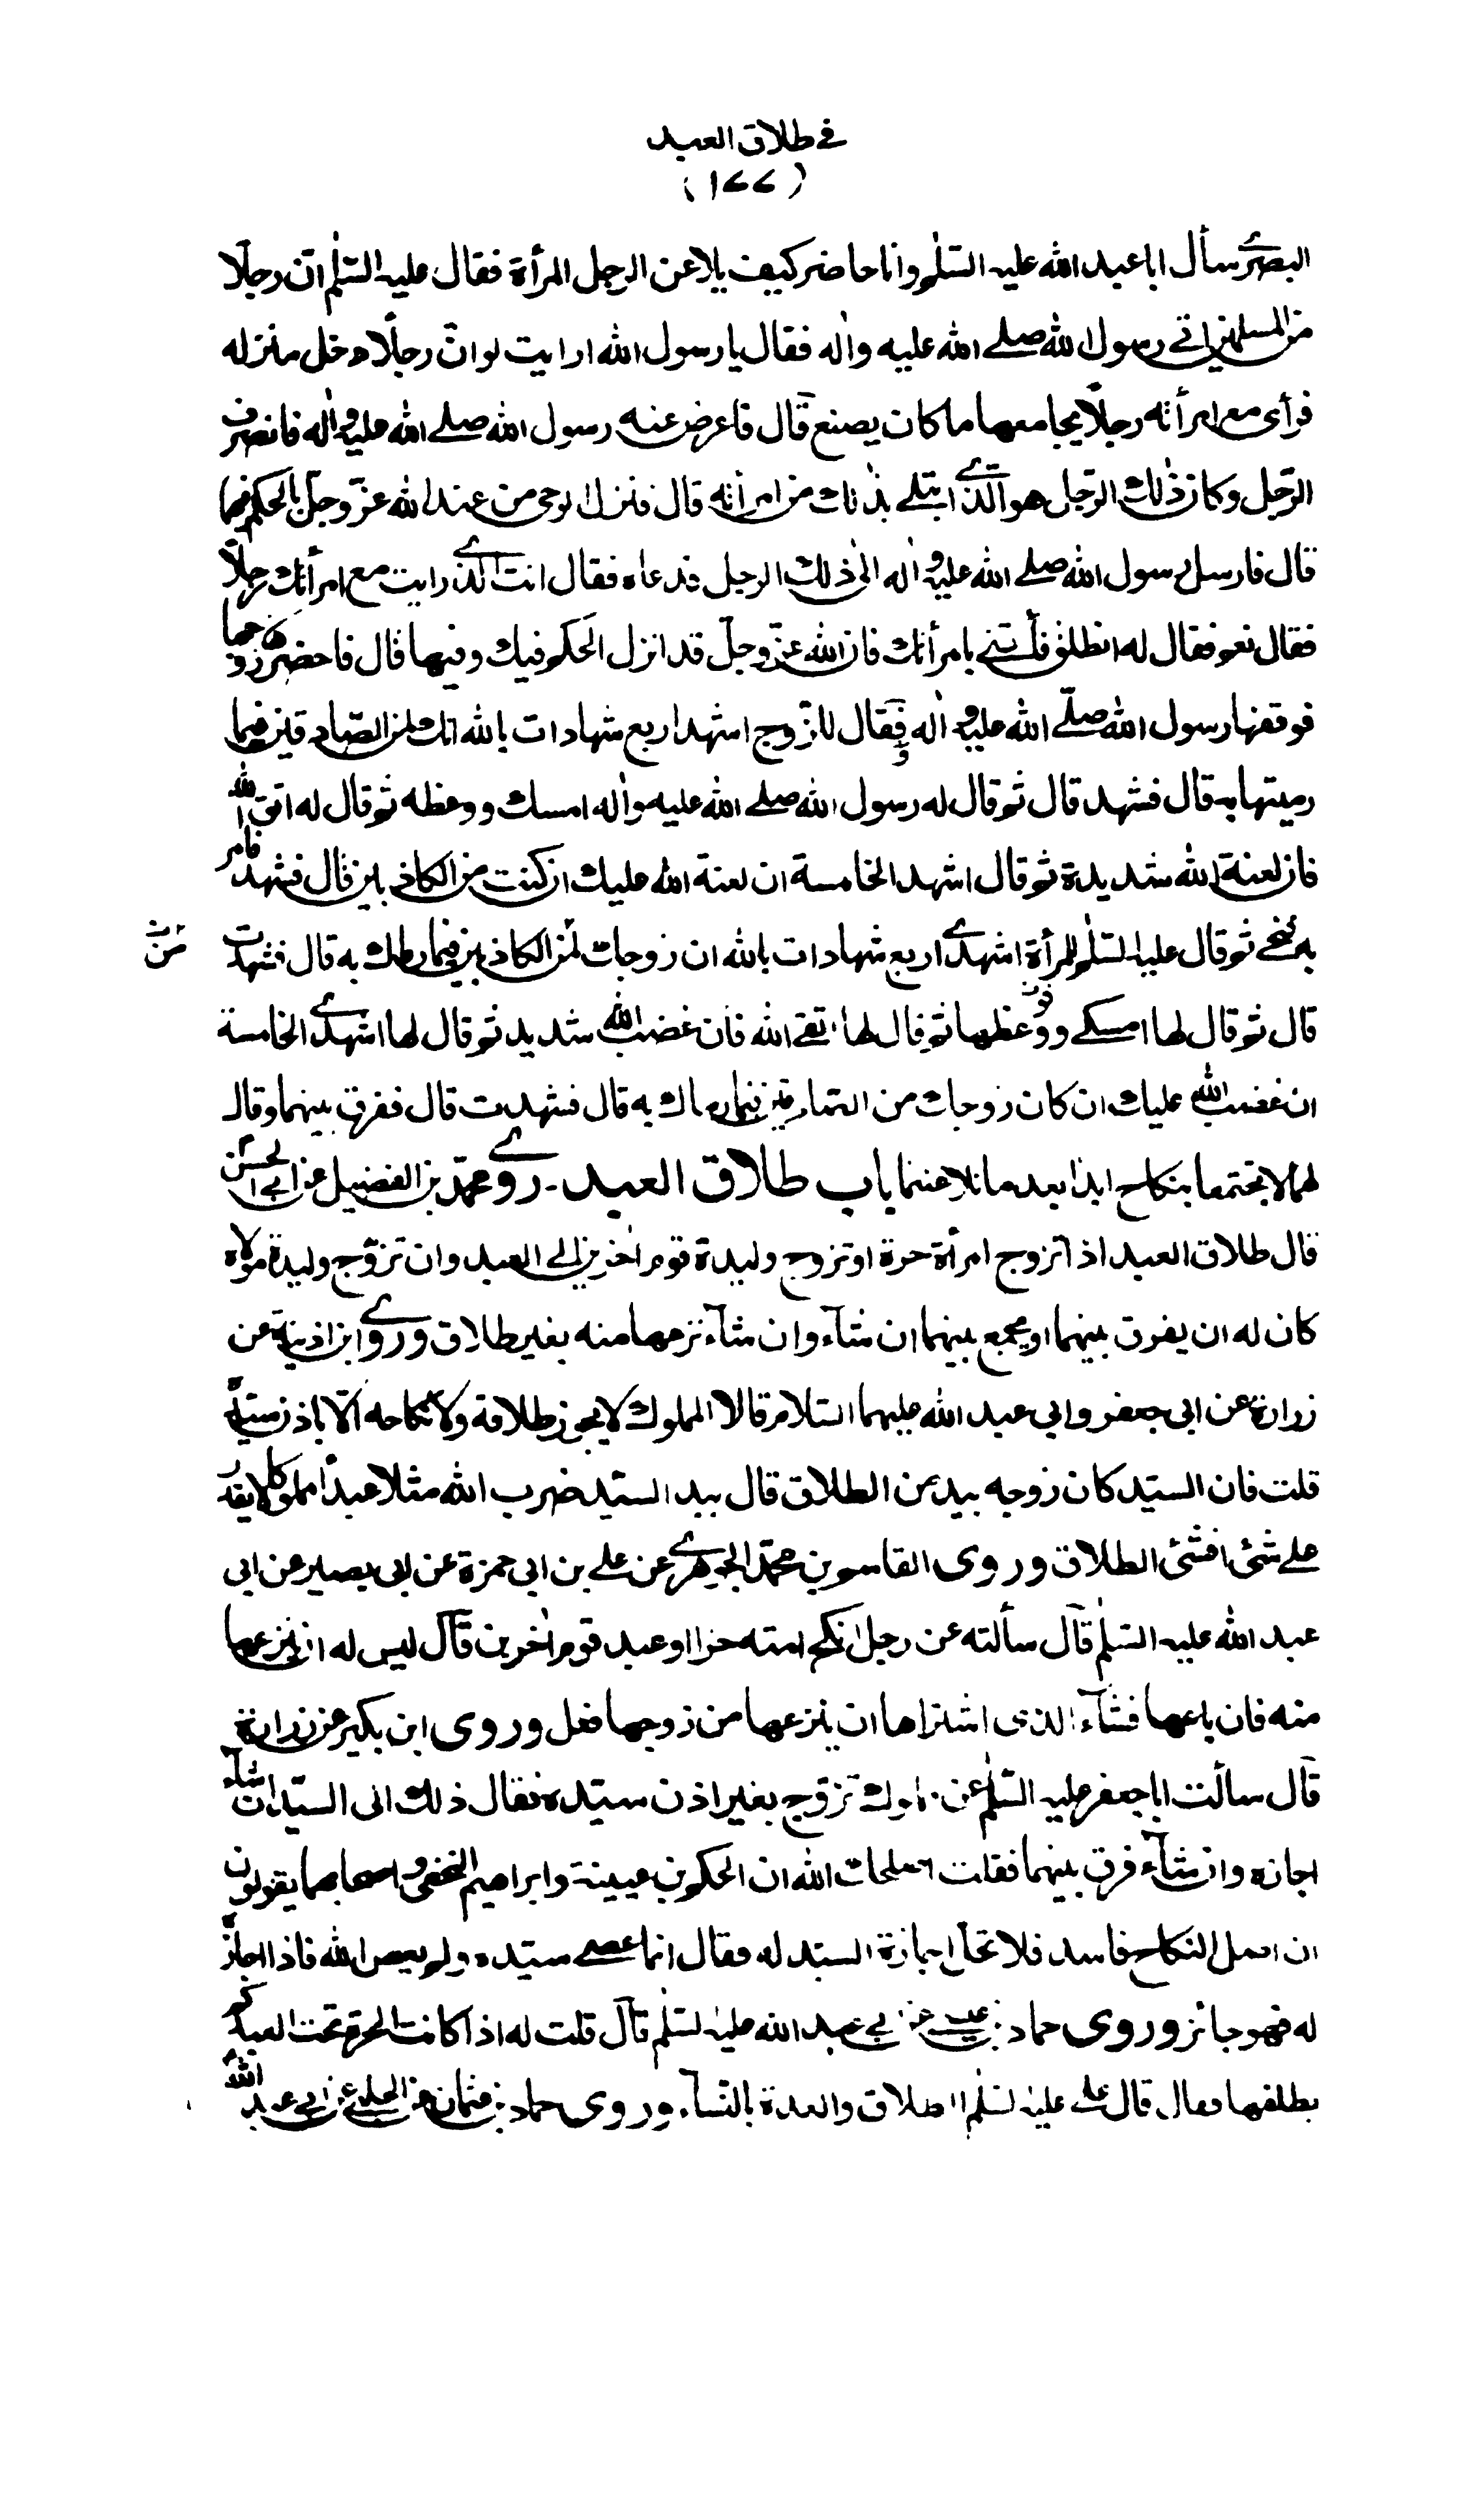 في طلاق العبد
(١٧٧)
البصري سأل ابا عبد الله عليه السلم وانا حاضر كيف يلاعن الرجل المرأة فقال عليه السلم ان رجلا
من المسلمين اتى رسول الله صلى الله عليه واله فقال يا رسول الله ارايت لو ان رجلا دخل منزله
فرأى مع امرأته رجلا يجامعها ما كان يصنع قال فاعرض عنه رسول الله صلى الله عليه واله فانصرف
الرجل وكان ذلك الرجل هو الذي ابتلى بذلك من امرأته قال فنزل الوحى من عند الله عز وجل بالحكم فيها
قال فارسل رسول الله صلى الله عليه واله الى ذلك الرجل فدعاه فقال انت الذي رايت مع امرأتك رجلا
فقال نعم فقال له انطلق فأتنى بامرأتك فان الله عز وجل قد انزل الحكم فيك وفيها قال فاحضرها زوجها
فوقفها رسول الله صلى الله عليه واله وقال للزوج اشهد اربع شهادات بالله انك لمن الصادقين فيما
رميتها به قال فشهد قال ثم قال له رسول الله صلى الله عليه واله امسك ووعظه ثم قال له اتق الله
فان لعنة الله شديدة ثم قال اشهد الخامسة ان لعنة الله عليك ان كنت من الكاذبين قال فشهد فامر
به فنحى ثم قال عليه السلم للمرأة اشهدي اربع شهادات بالله ان زوجك لمن الكاذبين فيما رماك به قال فشهدت
قال ثم قال لها امسكى ووعظها ثم قال لها اتقى الله فان غضب الله شديد ثم قال لها اشهدي الخامسة
ان غضب الله عليك ان كان زوجك من الصادقين فيما رماك به قال فشهدت قال ففرق بينهما وقال
لهما لا تجتمعا بنكاح ابدا بعد ما تلاعنتما باب طلاق العبد روى محمد بن الفضيل عن ابي الحسن
قال طلاق العبد اذا تزوج امرأة حرة او تزوج وليدة قوم اخرين الى العبد وان تزوج وليدة مولاه
كان له ان يفرق بينهما او يجمع بينهما ان شآء وان شآء نزعها منه بغير طلاق وروى ابن اذينة عن
زرارة عن ابى جعفر وابى عبد الله عليهما السلام قالا المملوك لا يجوز طلاقه ولا نكاحه الا باذن سيده
قلت فان السيد كان زوجه بيد من الطلاق قال بيد السيد ضرب الله مثلا عبدا مملوكا لا يقدر
على شئ افشئ الطلاق وروى القاسم بن محمد الجوهري عن على بن ابى حمزة عن ابى بصير عن ابى
عبد الله عليه السلم قال سألته عن رجل انكح امته حرا او عبد قوم اخرين قال ليس له ان ينزعها
منه فان باعها فشآء الذى اشتراها ان ينزعها من زوجها فعل وروى ابن بكير عن زرارة
قال سألت ابا جعفر عليه السلم عن مملوك تزوج بغير اذن سيده فقال ذلك الى السيد ان شآء
اجازه وان شآء فرق بينهما فقلت اصلحك الله ان الحكم بن عيينة وابراهيم النخعى واصحابهما يقولون
ان اصل النكاح فاسد فلا تحل اجازة السيد له فقال انما عصى سيده ولم يعص الله فاذا اجاز
له فهو جائز وروى حماد بن عيسى عن ابى عبد الله عليه السلم قال قلت له اذا كانت الحرة تحت العبد كم
يطلقها فقال قال على عليه السلم الطلاق والعدة بالنسآء وروى حماد بن عثمان عن الحلبى عن ابى عبد الله